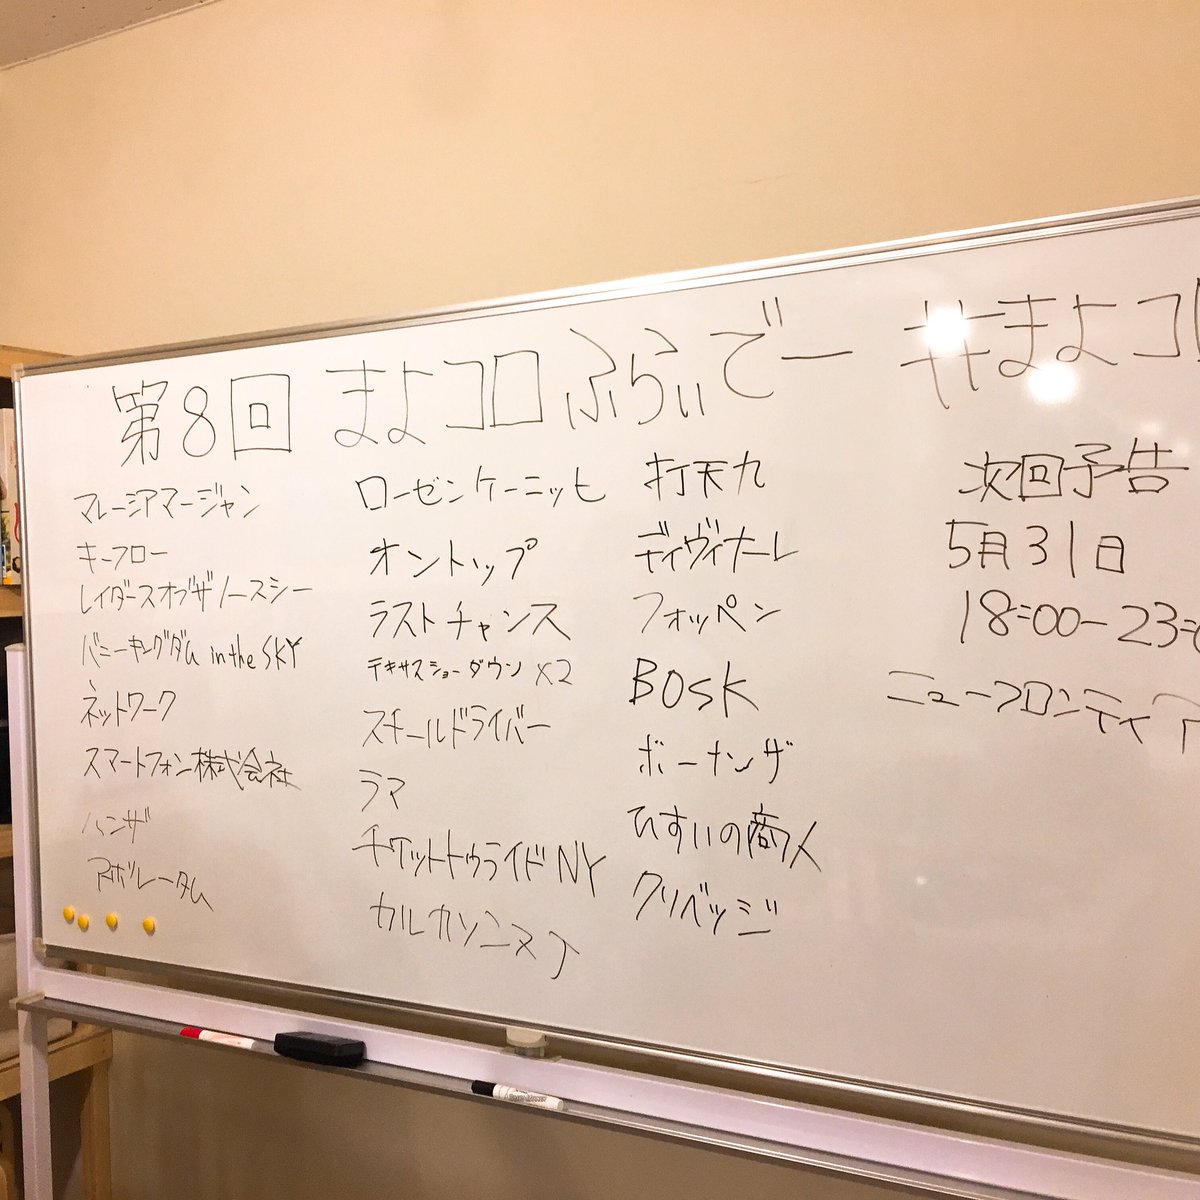 第8回 まよコロふらいでー #まよコロ
マレーシアマージャン
キーフロー
レイダースオブザノースシー
バニーキングダム in the SKY
ネットワーク
スマートフォン株式会社
ハンザ
マポレータム
ローゼンケーニッヒ
オントップ
ラストチャンス
テキサスショーダウン×2
スチールドライバー
ラマ
チケットトゥライドNY
カルカソンヌ
打天九
ディヴィナーレ
フォッペン
BOSK
ボーナンザ
ひすいの商人
クリベッジ
次回予告
5月31日
18:00-23:
ニューフロンティア